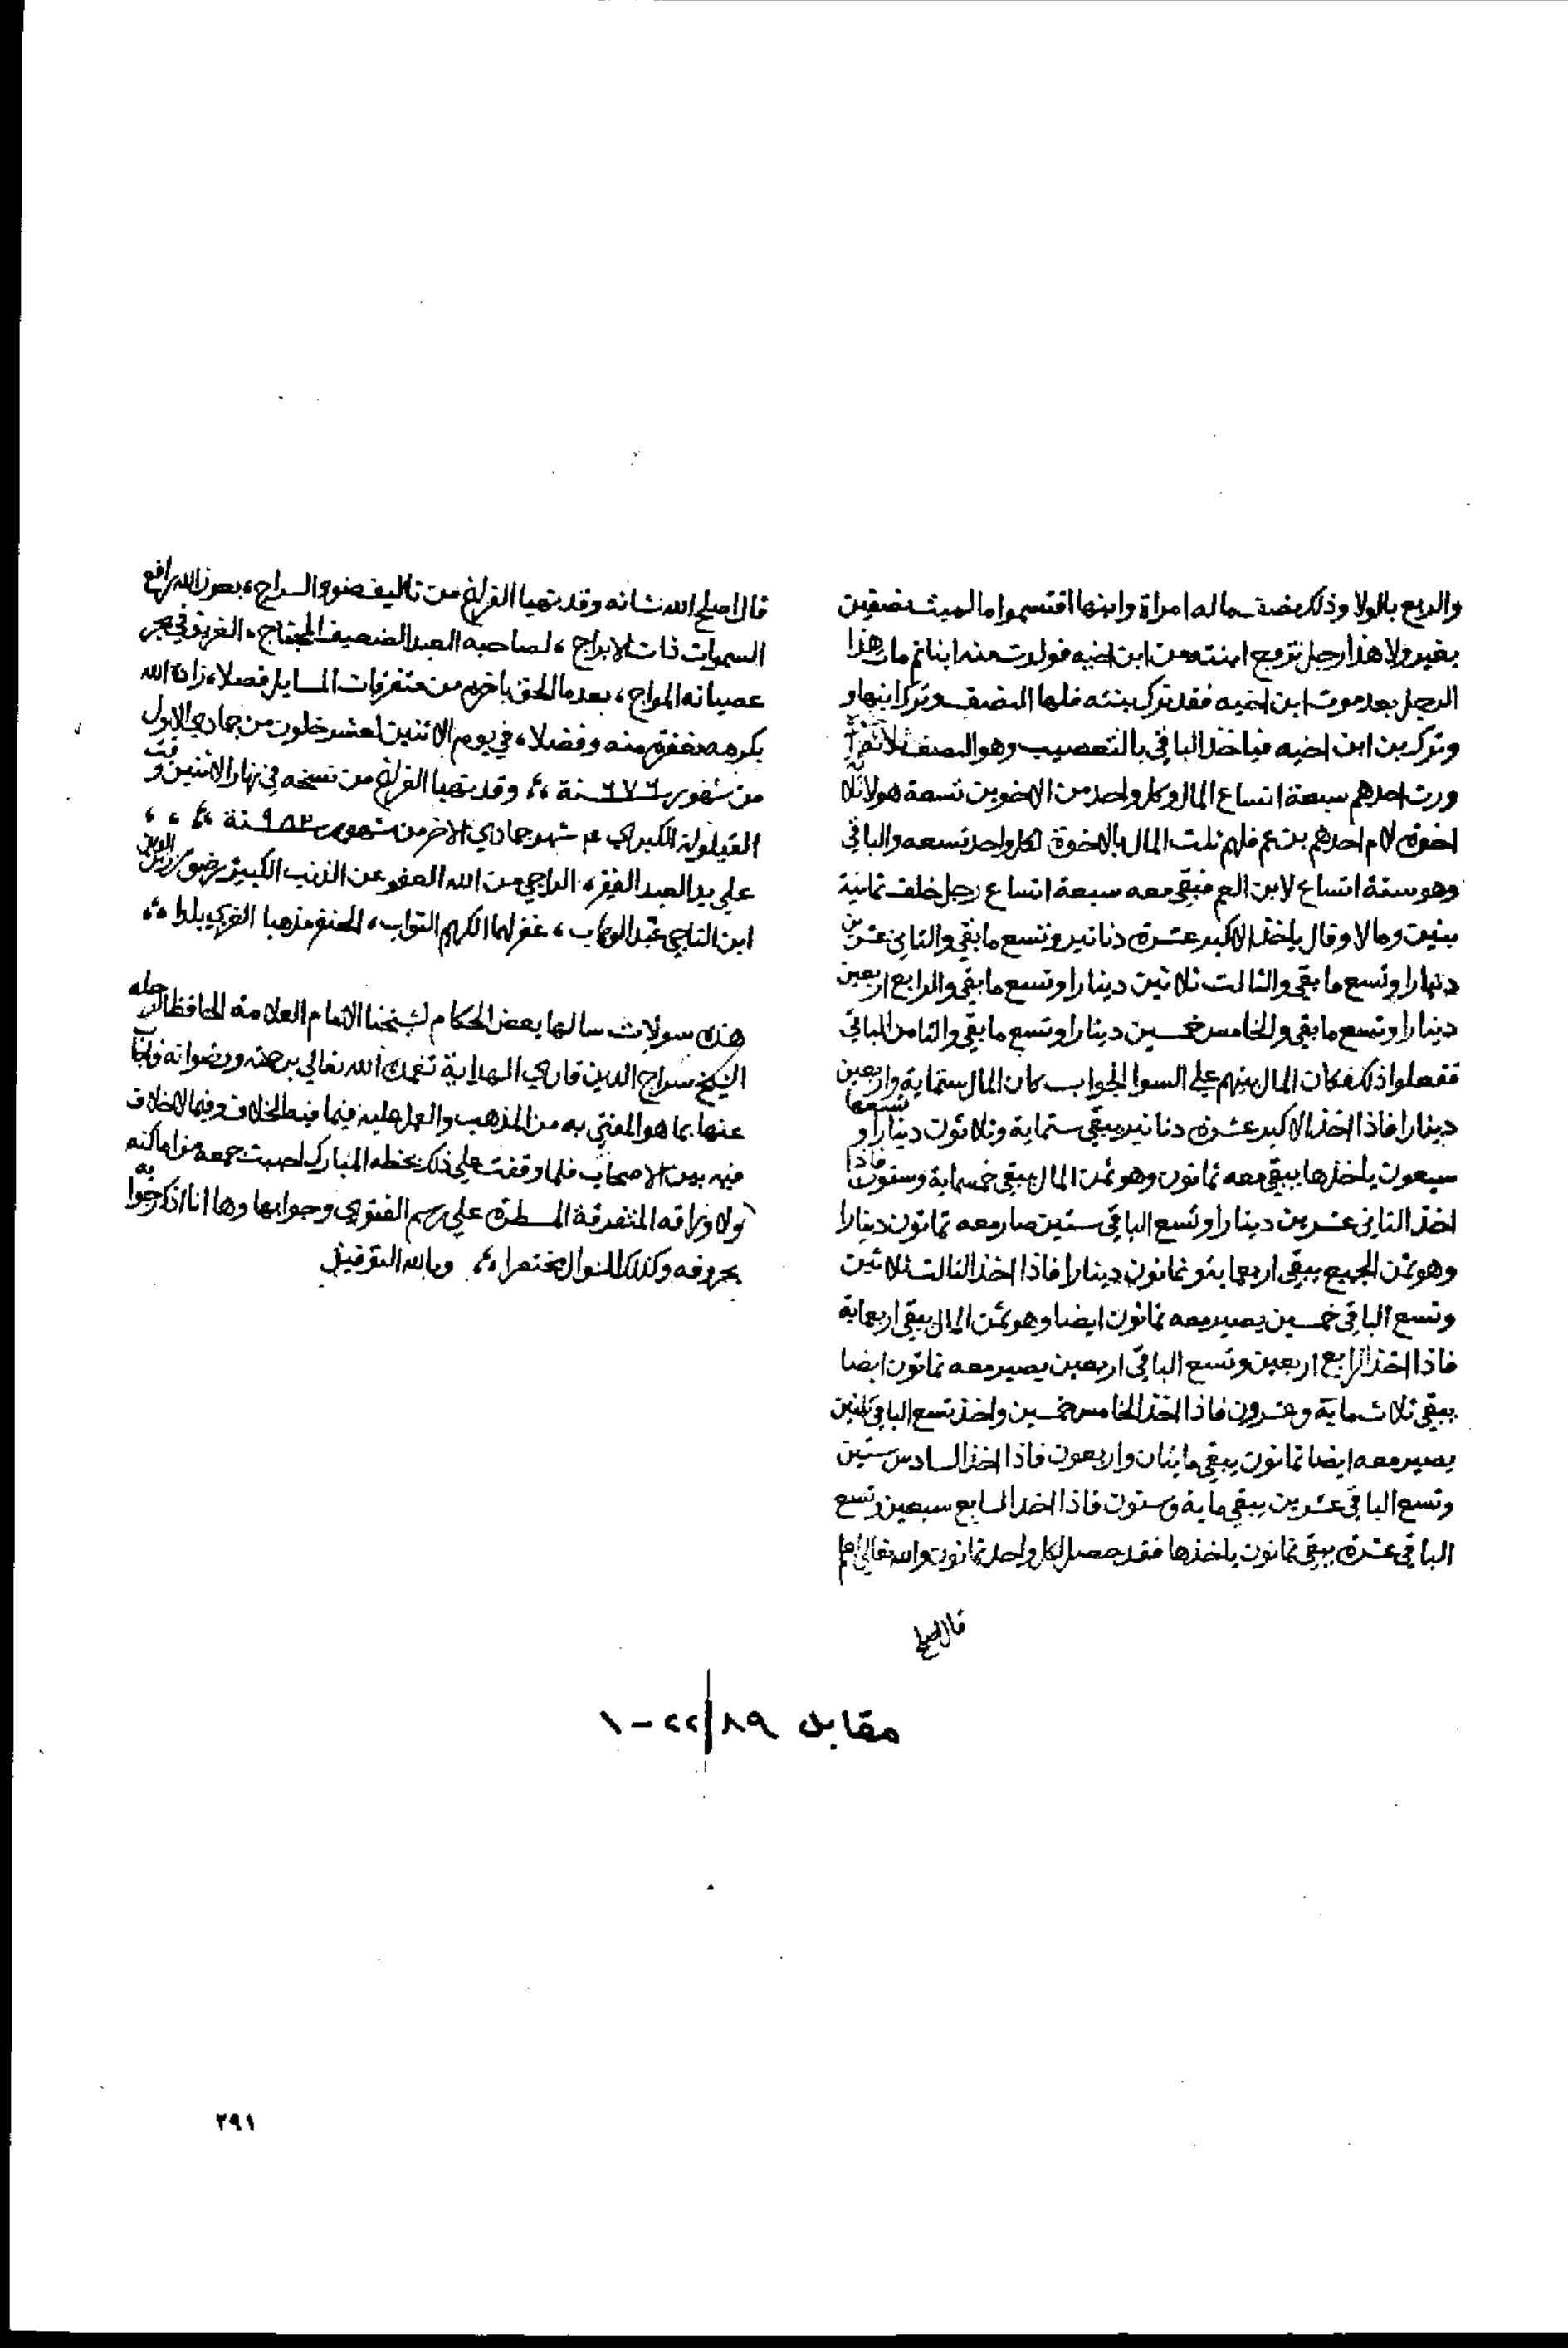 والربع بالولا وذلك نصف ماله امراة وابنها اقتسموا مال ميت نصفين
بغير ولا هذا رجل تزوج ابنته من ابن اخيه فولدت منه ابنا ثم مات هذا
الرجل بعد موت ابن اخيه فقد ترك بنته فلها النصف وترك ابنها و
وترك بن ابن اخيه فياخذ الباقي بالتعصيب وهو النصف ثلاثة
ورث احدهم سبعة اتساع المال وكل واحد من الاخوين تسعة هولا ثلاثة
اخوة لام احدهم بن عم فلهم ثلث المال بالاخوة لكل واحد تسعه والباقي
وهو ستة اتساع لابن العم فبقي معه سبعة اتساع رجل خلف ثمانية
بنين ومالا وقال ياخذ الاكبر عشرة دنانير وتسع ما بقي والثاني عشرين
دينارا وتسع ما بقي والثالث ثلاثين دينارا وتسع ما بقي والرابع اربعين
دينارا وتسع ما بقي والخامس خمسين دينارا وتسع ما بقي والثامن الباقي
ففعلوا ذلك فكان المال بينهم علي السوا الجواب كان المال ستماية واربعين
دينارا فاذا اخذ الاكبر عشرة دنانير يبقي ستماية وثلاثون دينارا و تسعها
سبعون ياخذها يبقي معه ثمانون وهو ثمن المال يبقي خمسماية وستون فاذا
اخذ الثاني عشرين دينارا وتسع الباقي ستين صار معه ثمانون دينارا
وهو ثمن الجميع يبقي اربعماية وثمانون دينارا فاذا اخذ الثالث ثلاثين
وتسع الباقي خمسين يصير معه ثمانون ايضا وهو ثمن المال يبقي اربعماية
فاذا اخذ الرابع اربعين وتسع الباقي اربعين يصير معه ثمانون ايضا
يبقي ثلاثماية وعشرون فاذا اخذ الخامس خمسين واخذ تسع الباقي ثلثين
يصير معه ايضا ثمانون يبقي مايتان واربعون فاذا اخذ السادس ستين
وتسع الباقي عشرين يبقي ماية وستون فاذا اخذ السابع سبعين وتسع
الباقي عشرة يبقي ثمانون ياخذها فقد حصل لكل واحد ثمانون والله تعالي اعلم
قال اصلح
قال اصلح الله شانه وقد تهيا الفراغ من تاليف ضوء السراج، بعون الله رافع
السموات ذات الابراج، لصاحبه العبد الضعيف المحتاج، الغريق في بحر
عصيانه المواج، بعد ما الحق باخره من متفرقات المسايل فصلا، زاده الله
بكرمه مغفرة منه وفضلا، في يوم الاثنين لعشر خلون من جمادي الاول
من شهور ٦٧٦ سنة، وقد تهيا الفراغ من نسخه في نهار الاثنين وقت
القيلولة الكبري شهر جمادي الاخر من شهور ٩٨٣ سنة
علي يد العبد الفقير، الراجي من الله العفو عن الذنب الكبير، رضوان
ابن الناجي عبد الوهاب، غفر لهما الكريم التواب، الحنفي مذهبا الغزي بلدا
هذه سولات سالها بعض الحكام لشيخنا الامام العلامة الحافظ الرحله
الشيخ سراج الدين قاري الهداية تغمده الله تعالي برحمته ورضوانه فاجاب
عنها بما هو المفتي به من المذهب والعمل عليه فيما فيه الخلاف وفيما لا خلاف
فيه بين الاصحاب فلما وقفت علي ذلك بخطه المبارك احببت جمعه من اماكنه
ولاوراقه المتفرقة المسطرة علي رسم الفتوي وجوابها وها انا اذكر جوابه
بحروفه وكذلك السوال مختصرا، وبالله التوفيق
مقابل ٨٩/٢٢-١
٢٩١